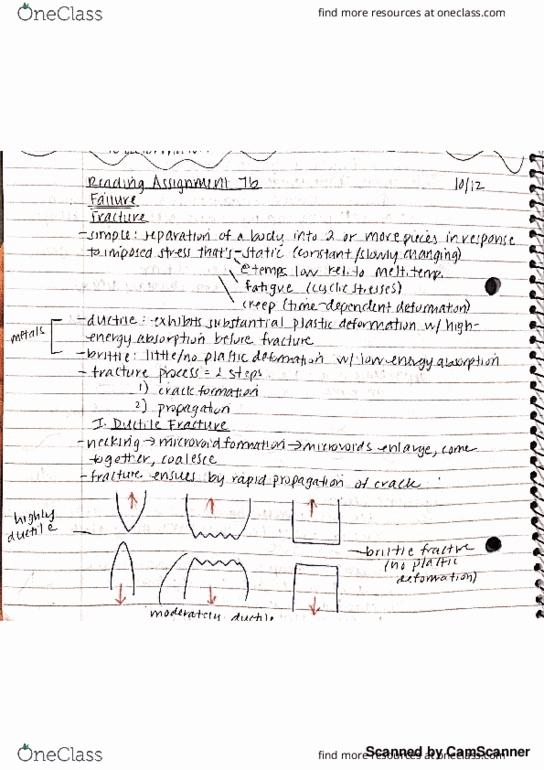 OneClass
find more resources at oneclass.com
Reading Assignment 7b
10/12
Failure
Fracture
-simple: separation of a body into 2 or more pieces in response
to imposed stress that's - static (constant/slowly changing)
@ temps low rel. to melt. temp.
fatigue (cyclic stresses)
creep (time-dependent deformation)
metals
-ductile: exhibits substantial plastic deformation w/ high-
energy absorption before fracture
-brittle: little/no plastic deformation w/ low energy absorption
-fracture process = 2 steps
1) crack formation
2) propagation
I. Ductile Fracture
-necking → microvoid formation → microvoids enlarge, come
together, coalesce
-fracture ensues by rapid propagation of crack
highly
ductile
brittle fractre
(no plastic
deformation)
moderately ductile
OneClass
find more resources at oneclass.com
Scanned by CamScanner